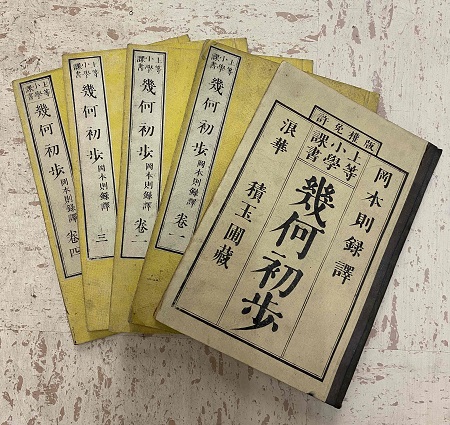 版權免許
岡本則録譯
上等小學課書
幾何初歩
浪華 積玉圃藏
上等小學課書 幾何初歩 岡本則録譯 卷一
上等小學課書 幾何初歩 岡本則録譯 卷二
上等小學課書 幾何初歩 岡本則録譯 三
上等小學課書 幾何初歩 岡本則録譯 卷四